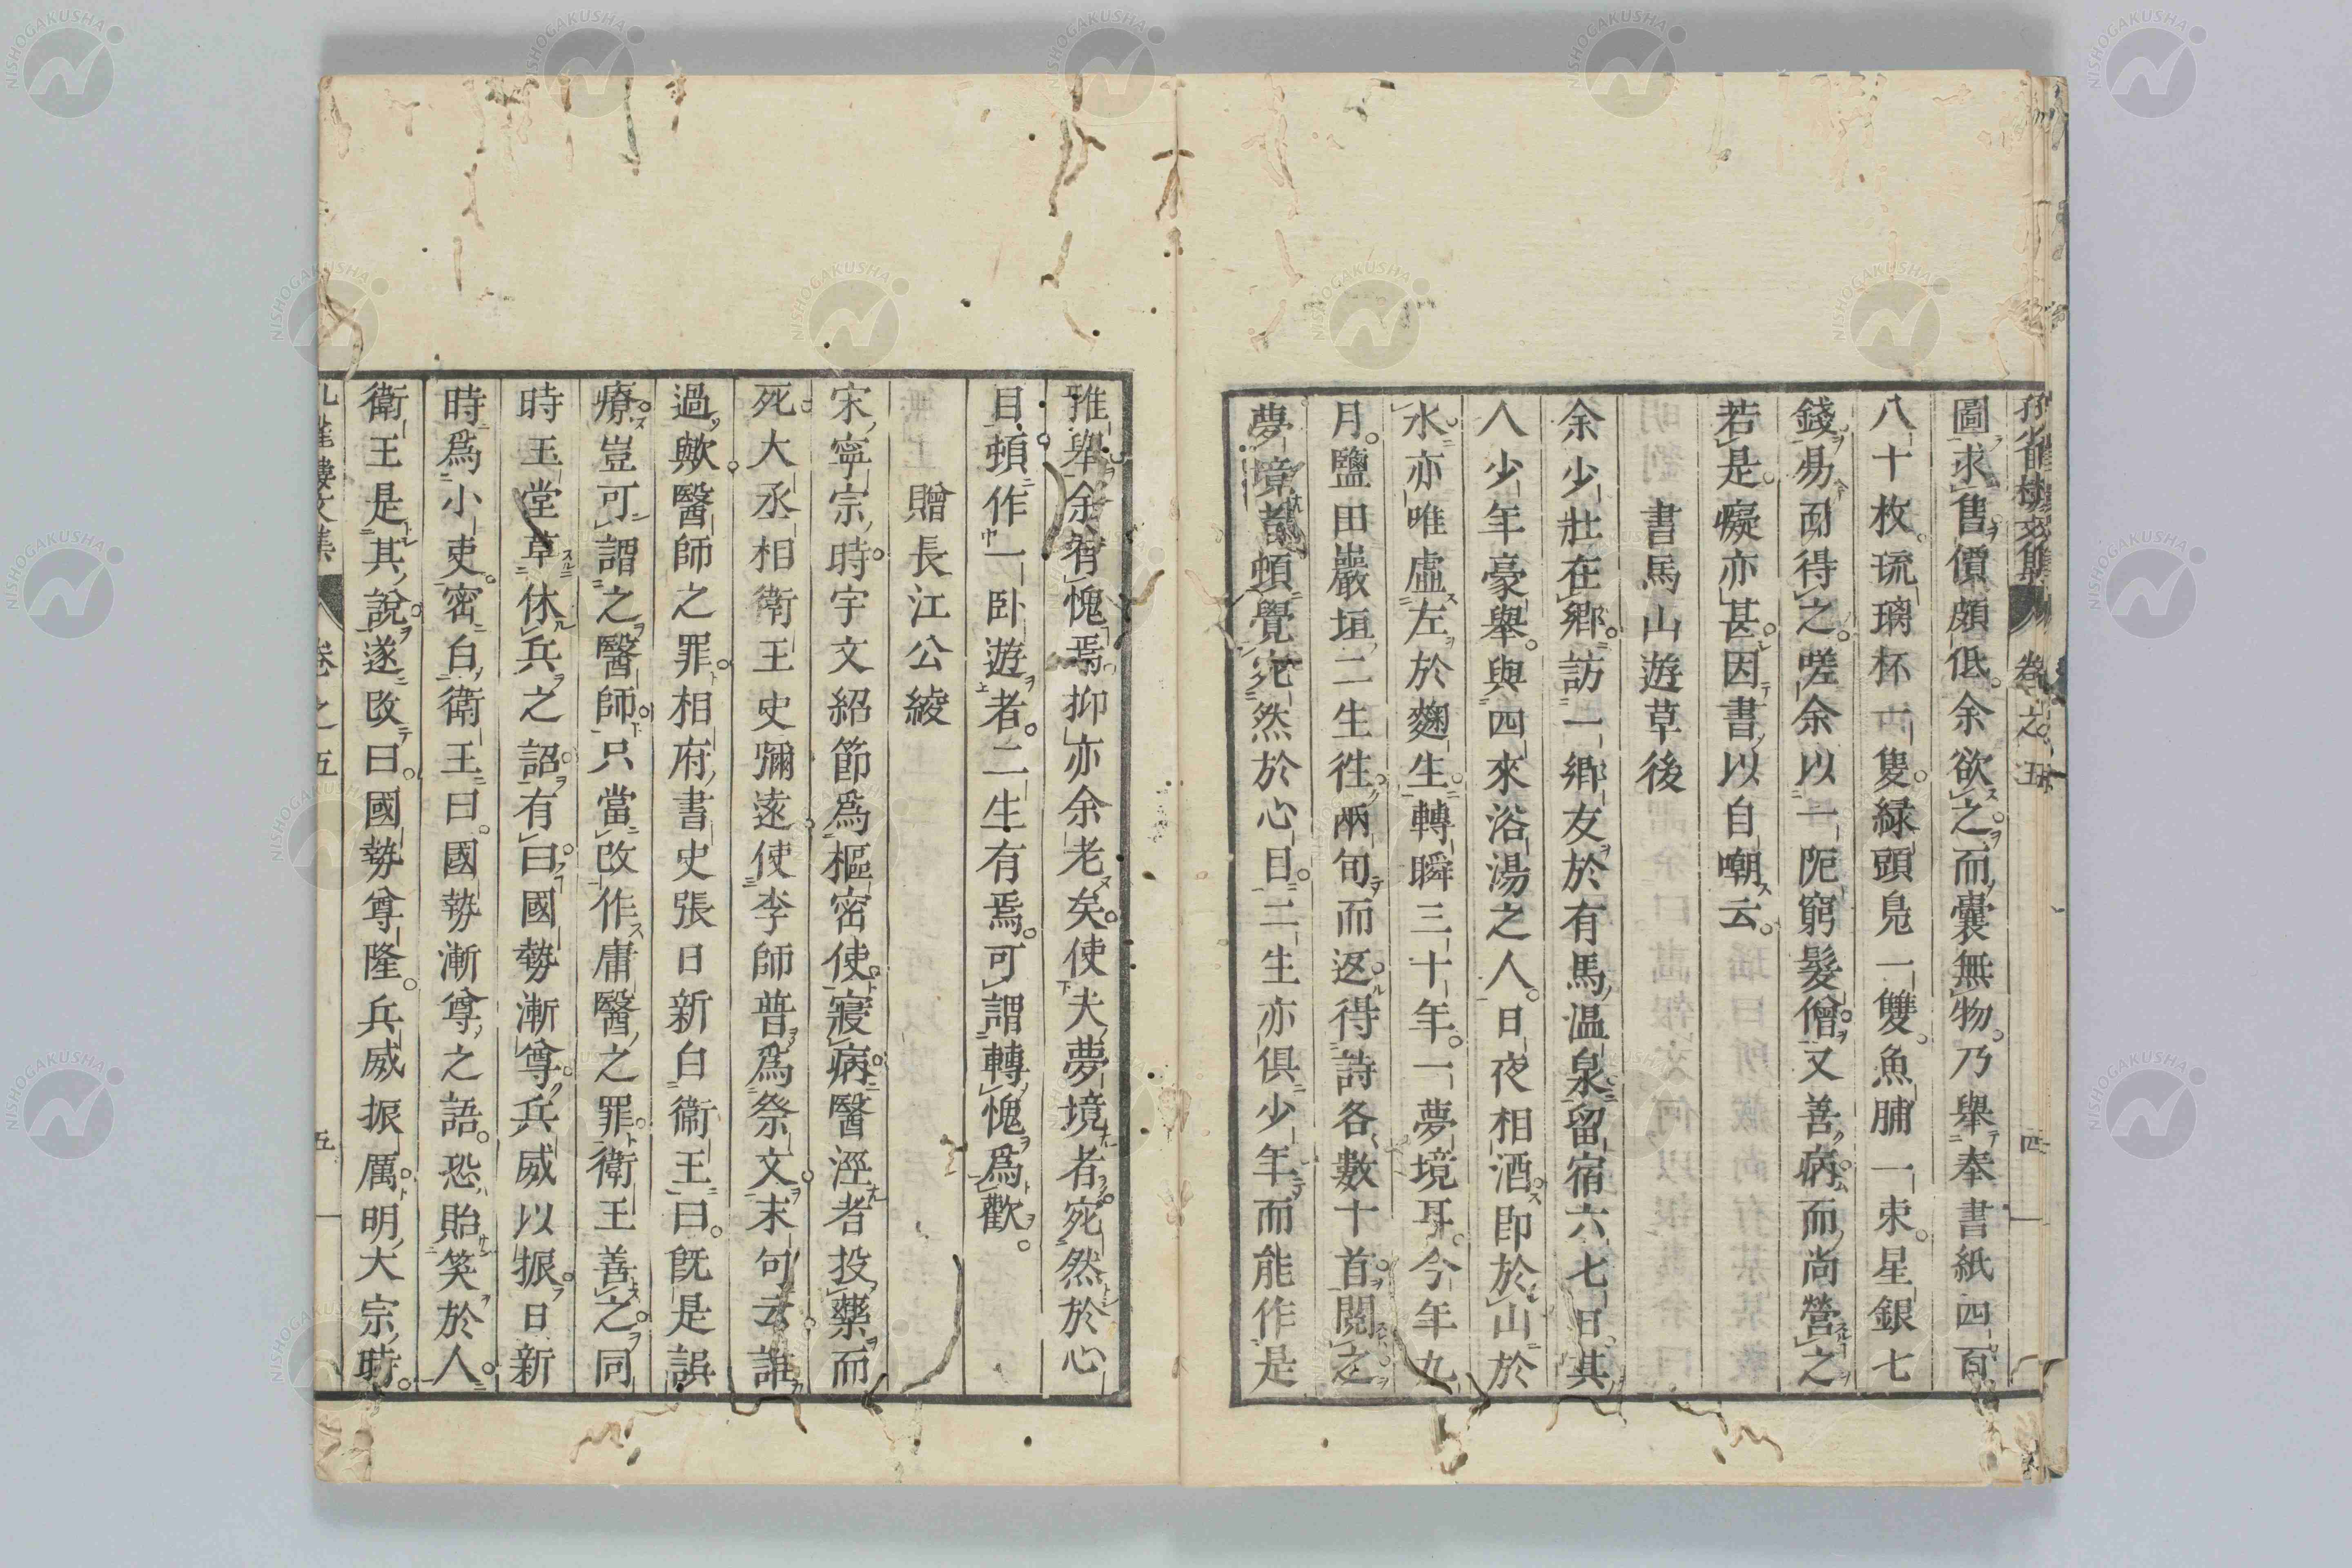 孔雀樓文集 卷之五 四
圖求售價頗低余欲之而囊無物乃舉奉書紙四百
八十枚琉璃杯一隻緑頭鳧一雙魚脯一束星銀七
錢易而得之嗟余以一阨窮髮僧又善病而尚營之
若是癡亦甚因書以自嘲云
書馬山遊草後
余少壯在鄉訪一鄉友於有馬温泉留宿六七日其
人少年豪舉與四來浴湯之人日夜相酒即於山於
水亦唯虛左於麴生轉瞬三十年一夢境耳今年九
月鹽田巖垣二生徃兩旬而返得詩各數十首閱之
夢境頓覺宛然於心目二生亦俱少年而能作是
雅舉余有愧焉抑亦余老矣使夫夢境者宛然於心
目頓作一卧遊者二生有焉可謂轉愧爲歡
贈長江公綾
宋寧宗時宇文紹節爲樞密使寢病醫涇者投藥而
死大丞相衛王史彌遠使李師普爲祭文末句云誰
過歟醫師之罪相府書史張日新白衞王曰旣是誤
療豈可謂之醫師只當改作庸醫之罪衛王善之同
時玉堂草休兵之詔有曰國勢漸尊兵威以振日新
時爲小吏密白衛王曰國勢漸尊之語恐貽笑於人
衛王是其說遂改曰國勢尊隆兵威振厲明大宗時
孔雀樓文集 卷之五 五